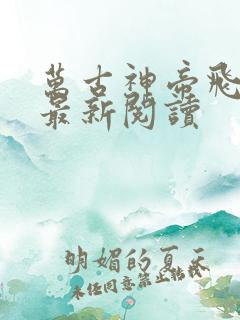 萬古神帝飛
最新閱讀
明媚的夏天
未任同意禁止轉載